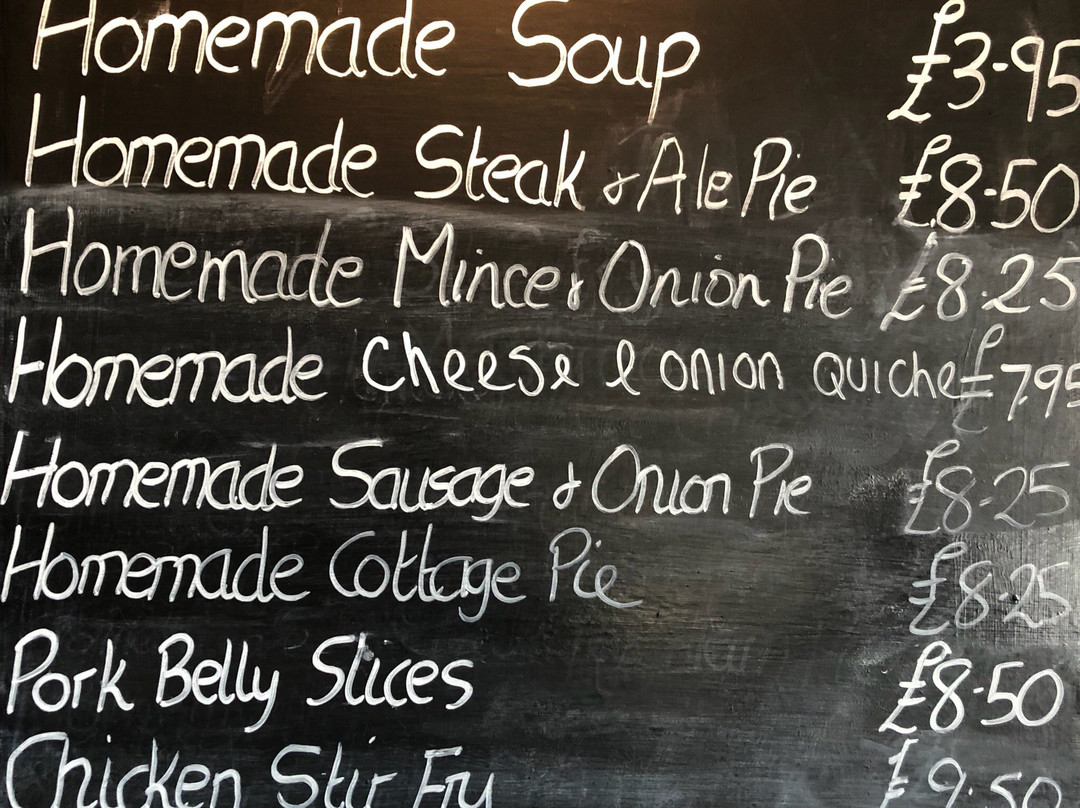 Homemade Soup £3.95
Homemade Steak & Ale Pie £8.50
Homemade Mince & Onion Pie £8.25
Homemade Cheese & onion quiche £7.95
Homemade Sausage & Onion Pie £8.25
Homemade Cottage Pie £8.25
Pork Belly Slices £8.50
Chicken Stir Fry £9.50